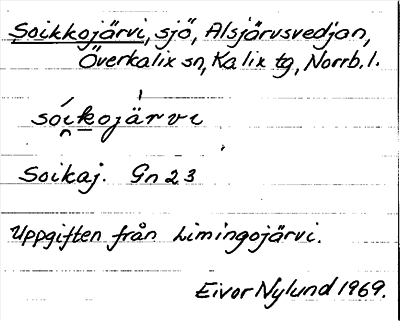 Soikkojärvi, sjö, Alsjärvsvedjan,
Överkalix sn, Kalix tg, Norrb. l.
sói̯ko̱jä̀rvi
Soikaj. Gn 23
Uppgiften från Limingojärvi.
Eivor Nylund 1969.